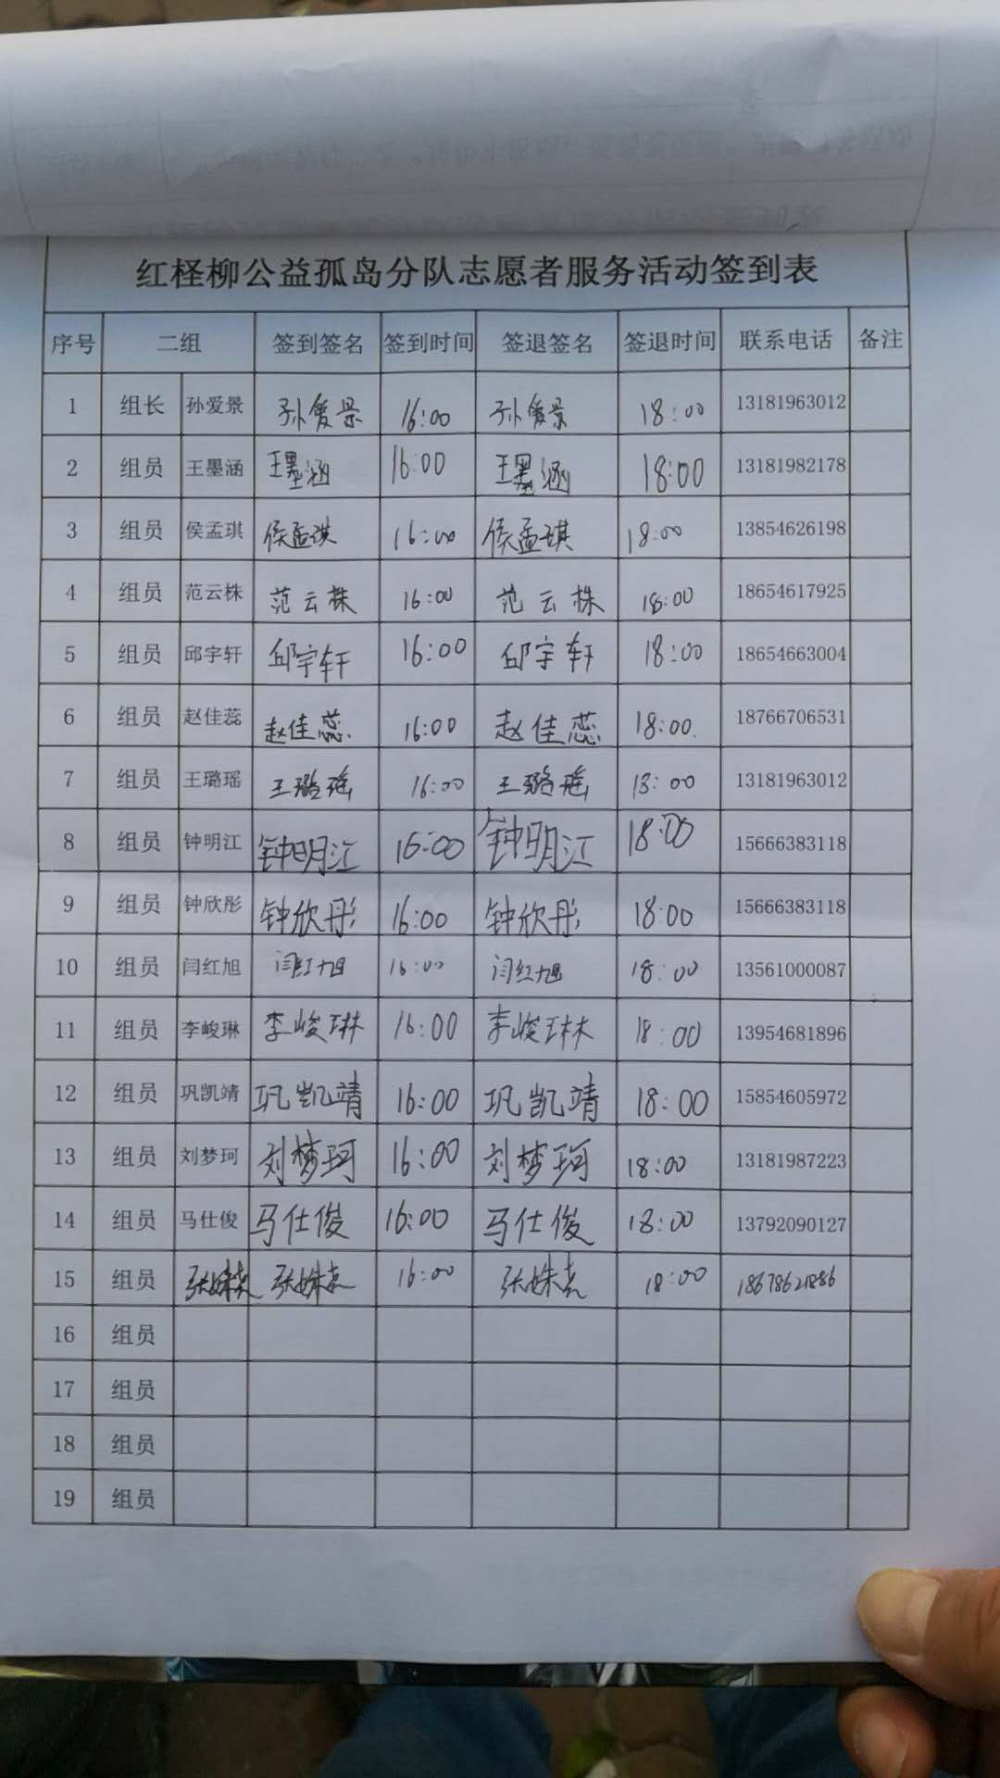 红柽柳公益孤岛分队志愿者服务活动签到表
序号 二组 签到签名 签到时间 签退签名 签退时间 联系电话 备注
1 组长 孙爱景 孙爱景 16:00 孙爱景 18:00 13181963012
2 组员 王墨涵 王墨涵 16:00 王墨涵 18:00 13181982178
3 组员 侯孟琪 侯孟琪 16:00 侯孟琪 18:00 13854626198
4 组员 范云株 范云株 16:00 范云株 18:00 18654617925
5 组员 邱宇轩 邱宇轩 16:00 邱宇轩 18:00 18654663004
6 组员 赵佳蕊 赵佳蕊 16:00 赵佳蕊 18:00 18766706531
7 组员 王璐瑶 王璐瑶 16:00 王璐瑶 18:00 13181963012
8 组员 钟明江 钟明江 16:00 钟明江 18:00 15666383118
9 组员 钟欣彤 钟欣彤 16:00 钟欣彤 18:00 15666383118
10 组员 闫红旭 闫红旭 16:00 闫红旭 18:00 13561000087
11 组员 李峻琳 李峻琳 16:00 李峻琳 18:00 13954681896
12 组员 巩凯靖 巩凯靖 16:00 巩凯靖 18:00 15854605972
13 组员 刘梦珂 刘梦珂 16:00 刘梦珂 18:00 13181987223
14 组员 马仕俊 马仕俊 16:00 马仕俊 18:00 13792090127
15 组员 16:00 18:00
16 组员
17 组员
18 组员
19 组员